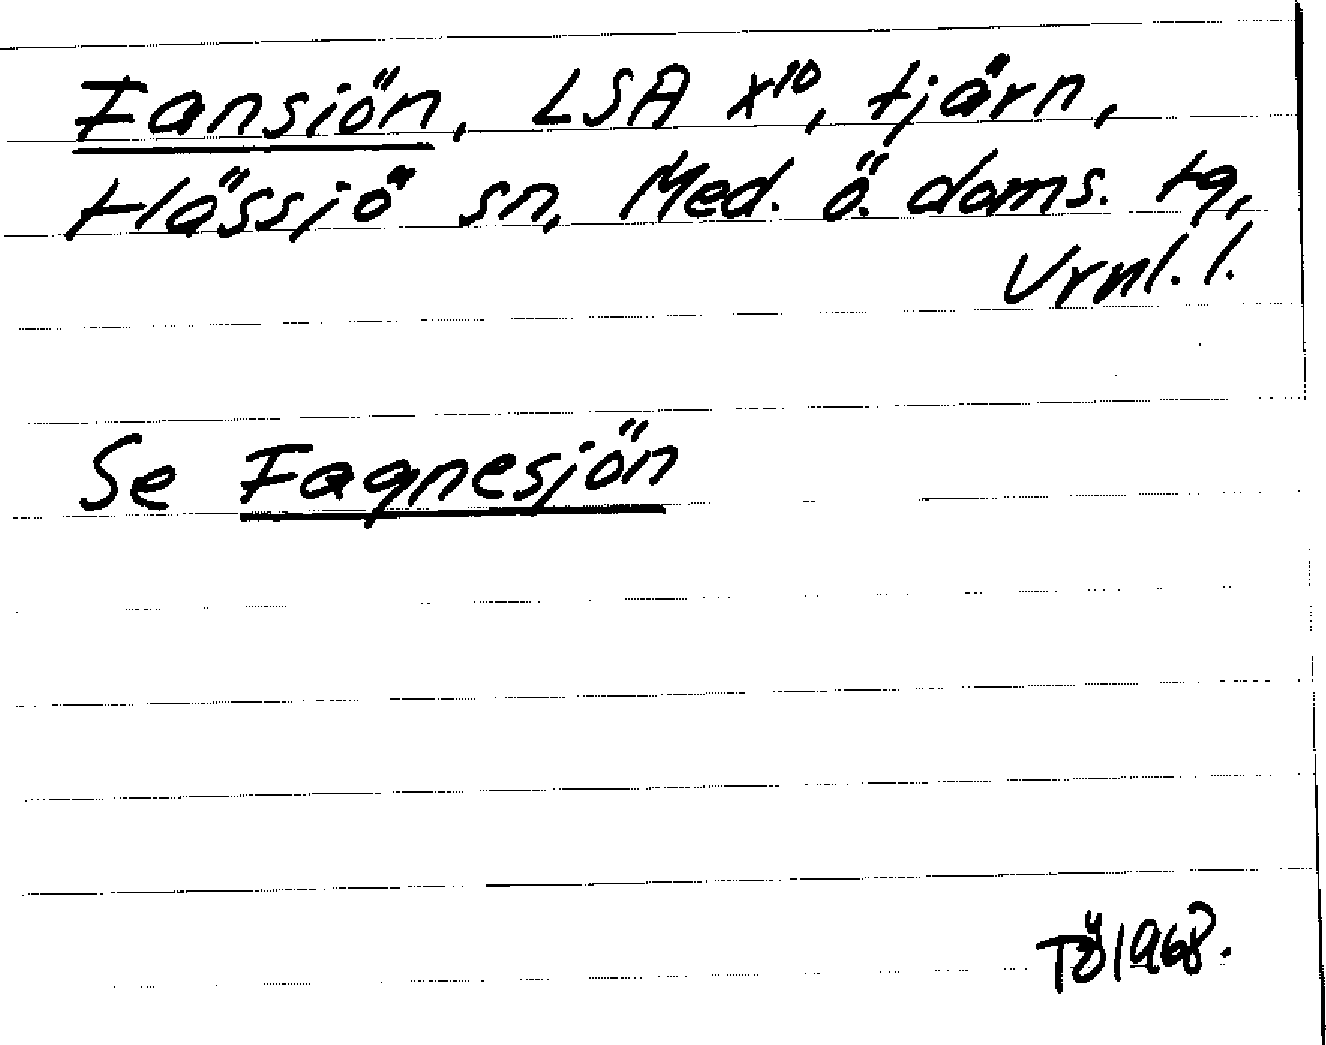 Fansiön, LSA X10, tjärn,
Hässjö sn, Med. ö. doms. tg,
Vrnl. l.
Se Fagnesjön
TÖ 1968.